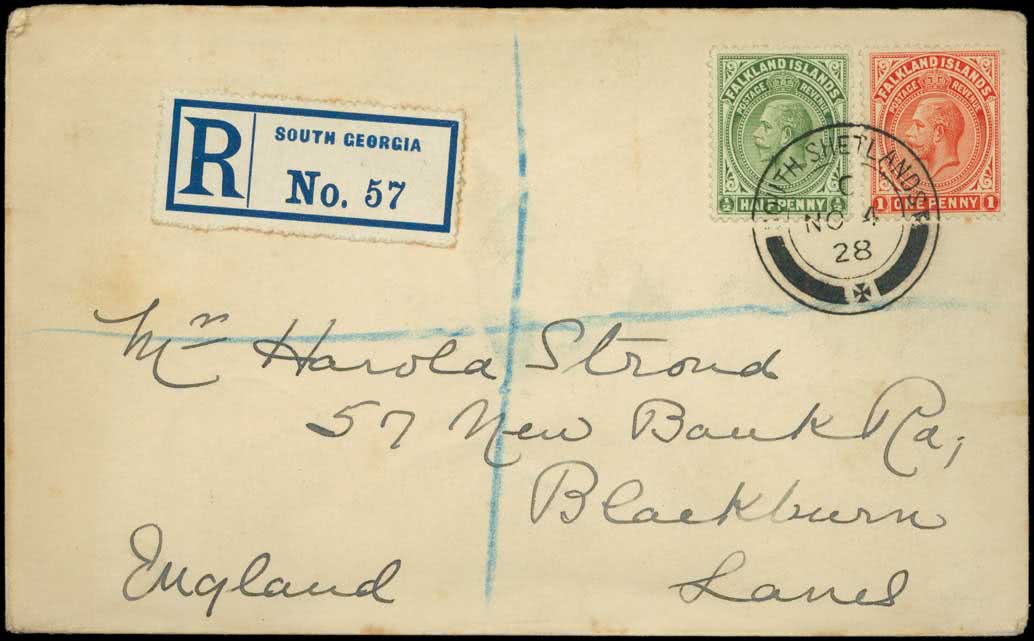 FALKLAND ISLANDS
POSTAGE REVENUE
½ HALFPENNY ½
FALKLAND ISLANDS
POSTAGE REVENUE
1 ONE PENNY 1
R SOUTH GEORGIA
No. 57
SOUTH SHETLANDS
C
NO 4
28
Mr Harold Stroud
57 New Bank Rd,
Blackburn
England Lancs